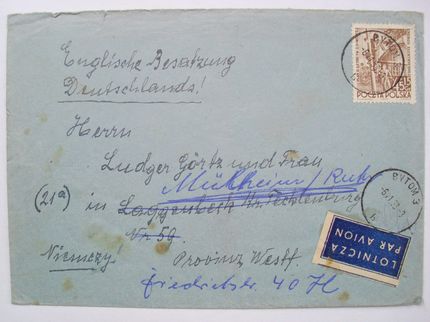 Englische Besatzung
Deutschlands!
BYTOM
POCZTA POLSKA
Herrn
Ludger Görtz und Frau
Mülheim/Ruhr
(21a) in Laggenbeck Kr. Tecklenburg
Nr. 50
Niemczy! Provinz Westf
Friedrichstr. 40 II
BYTOM 3
LOTNICZA
PAR AVION